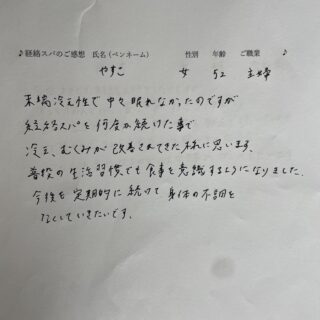 ♪経絡スパのご感想 氏名(ペンネーム) 性別 年齢 ご職業 ♪
やすこ 女 52 主婦
末端冷え性で中々眠れなかったのですが
経絡スパを何度か続けた事で
冷え、むくみが改善されてきた様に思います。
普段の生活習慣でも食事を意識するようになりました。
今後も定期的に続けて身体の不調を
なくしていきたいです。